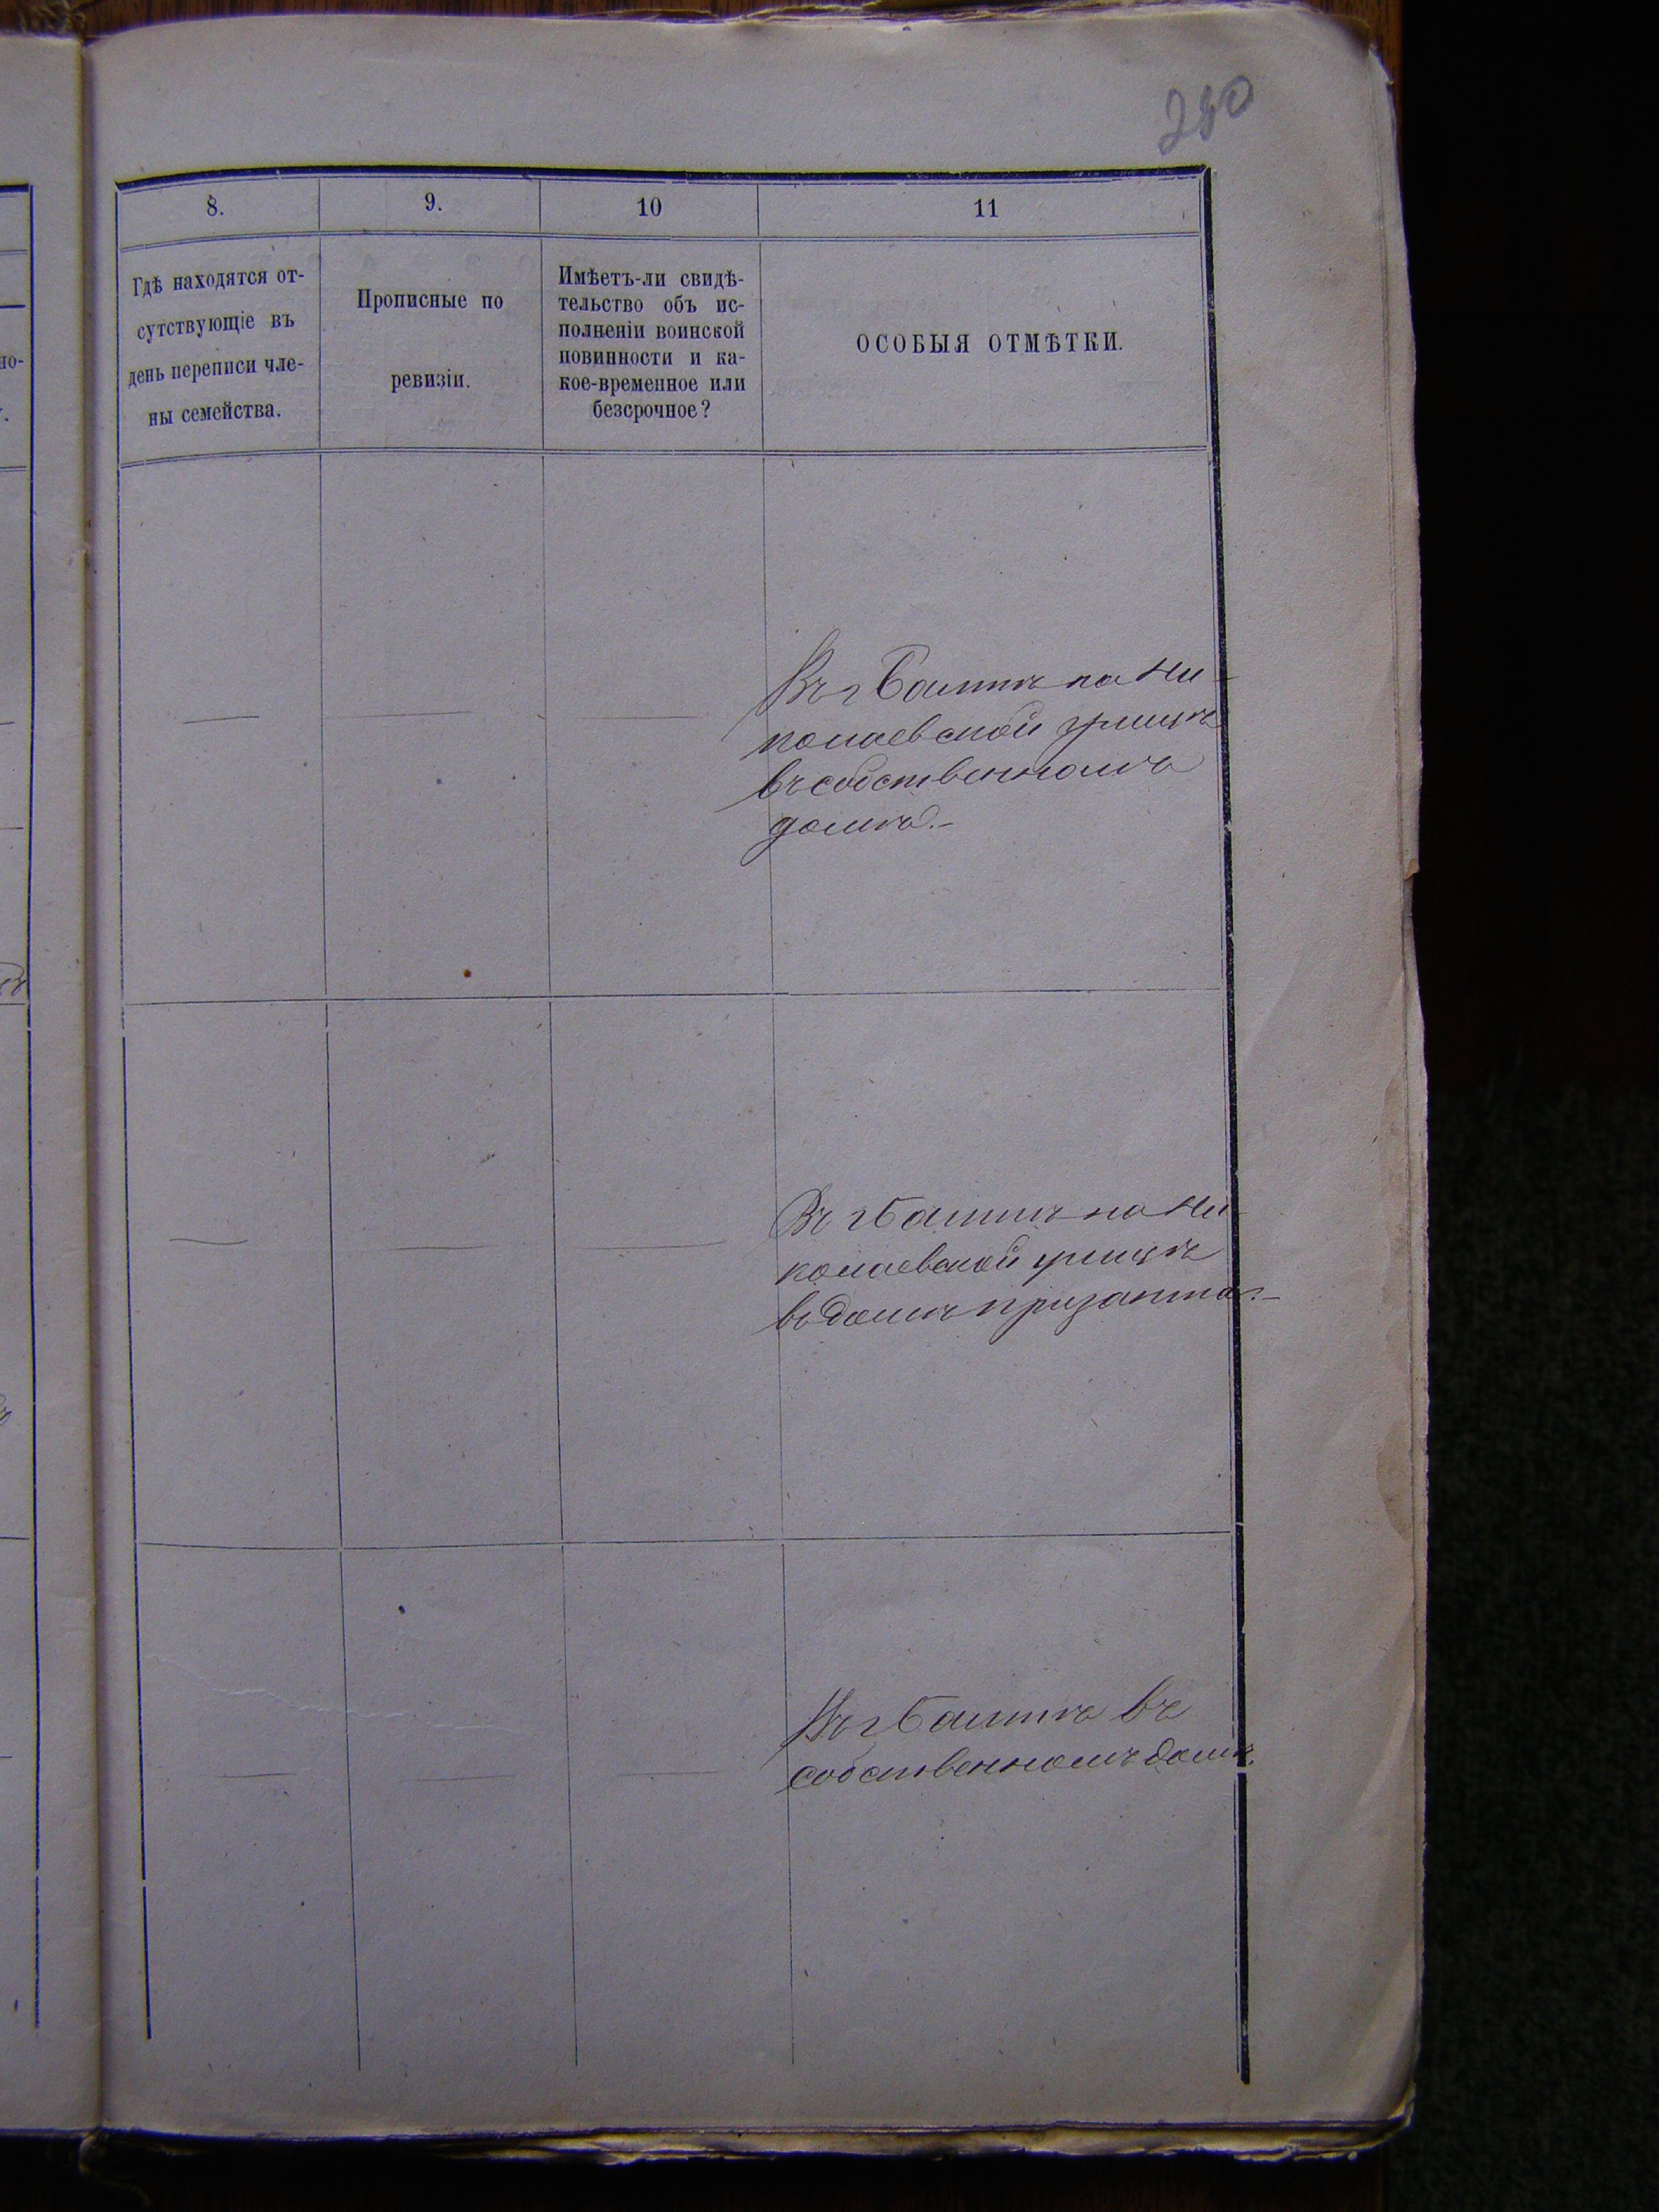 280
8.
9.
10
11
Гдѣ находятся от-
сутствующіе въ
день переписи чле-
ны семейства.
Прописные по
ревизіи.
Имѣетъ-ли свидѣ-
тельство объ ис-
полненіи воинской
повинности и ка-
кое-временное или
безсрочное?
ОСОБЫЯ ОТМѢТКИ.
Въ г Балтѣ на Ни-
колаевской улицѣ
въ собственномъ
домѣ.-
Въ г Балтѣ на Ни-
колаевской улицѣ
въ домѣ Призанта.-
Въ г Балтѣ въ
собственномъ домѣ.
но-